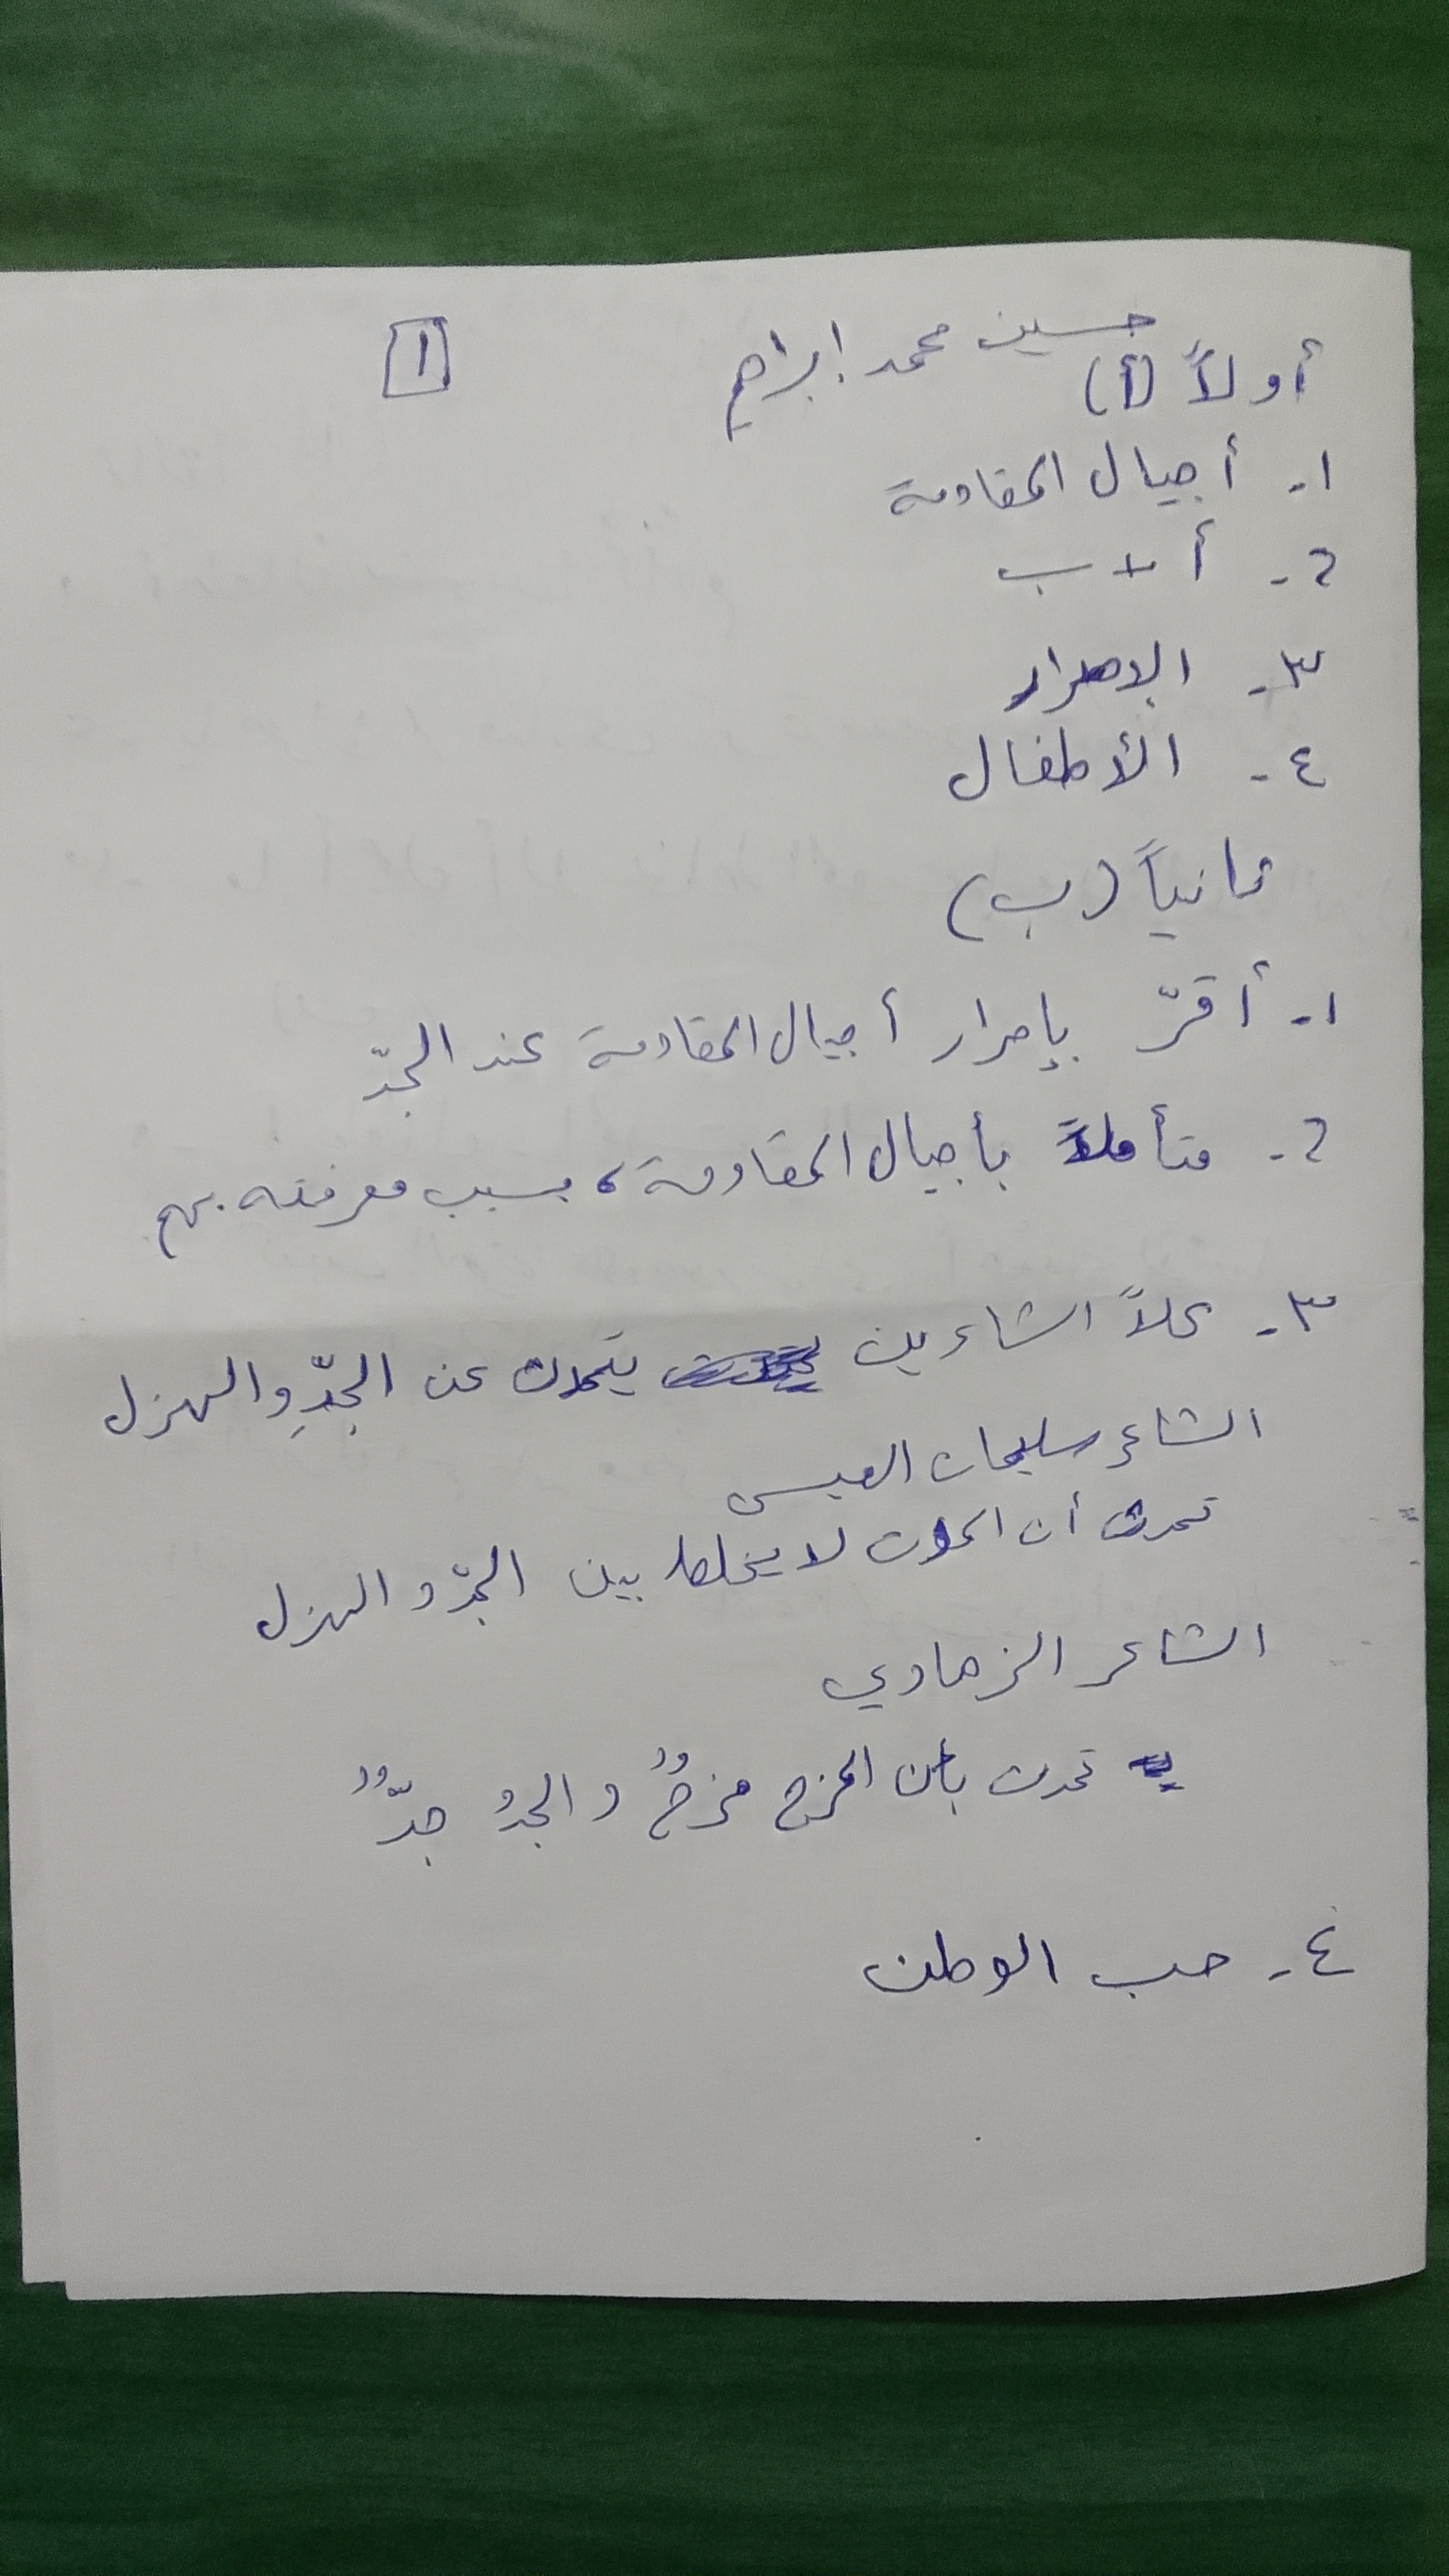 حسين محمد ابراهيم
١
أولاً (أ)
١- أجيال المقاومة
٢- أ + ب
٣- الاصرار
٤- الأطفال
ثانياً (ب)
١- أقرّ بإصرار أجيال المقاومة عند الجدّ
٢- متأملاً بأجيال المقاومة، بسبب معرفته بهم
٣- كلاً الشاعرين يتحدث عن الجدِّ والهزل
الشاعر سليمان العيسى
تحدث أن الموت لا يخلط بين الجدّ و الهزل
الشاعر الزهاوي
تحدث بأن المزح مزحٌ و الجدُ جدٌّ
٤- حب الوطن